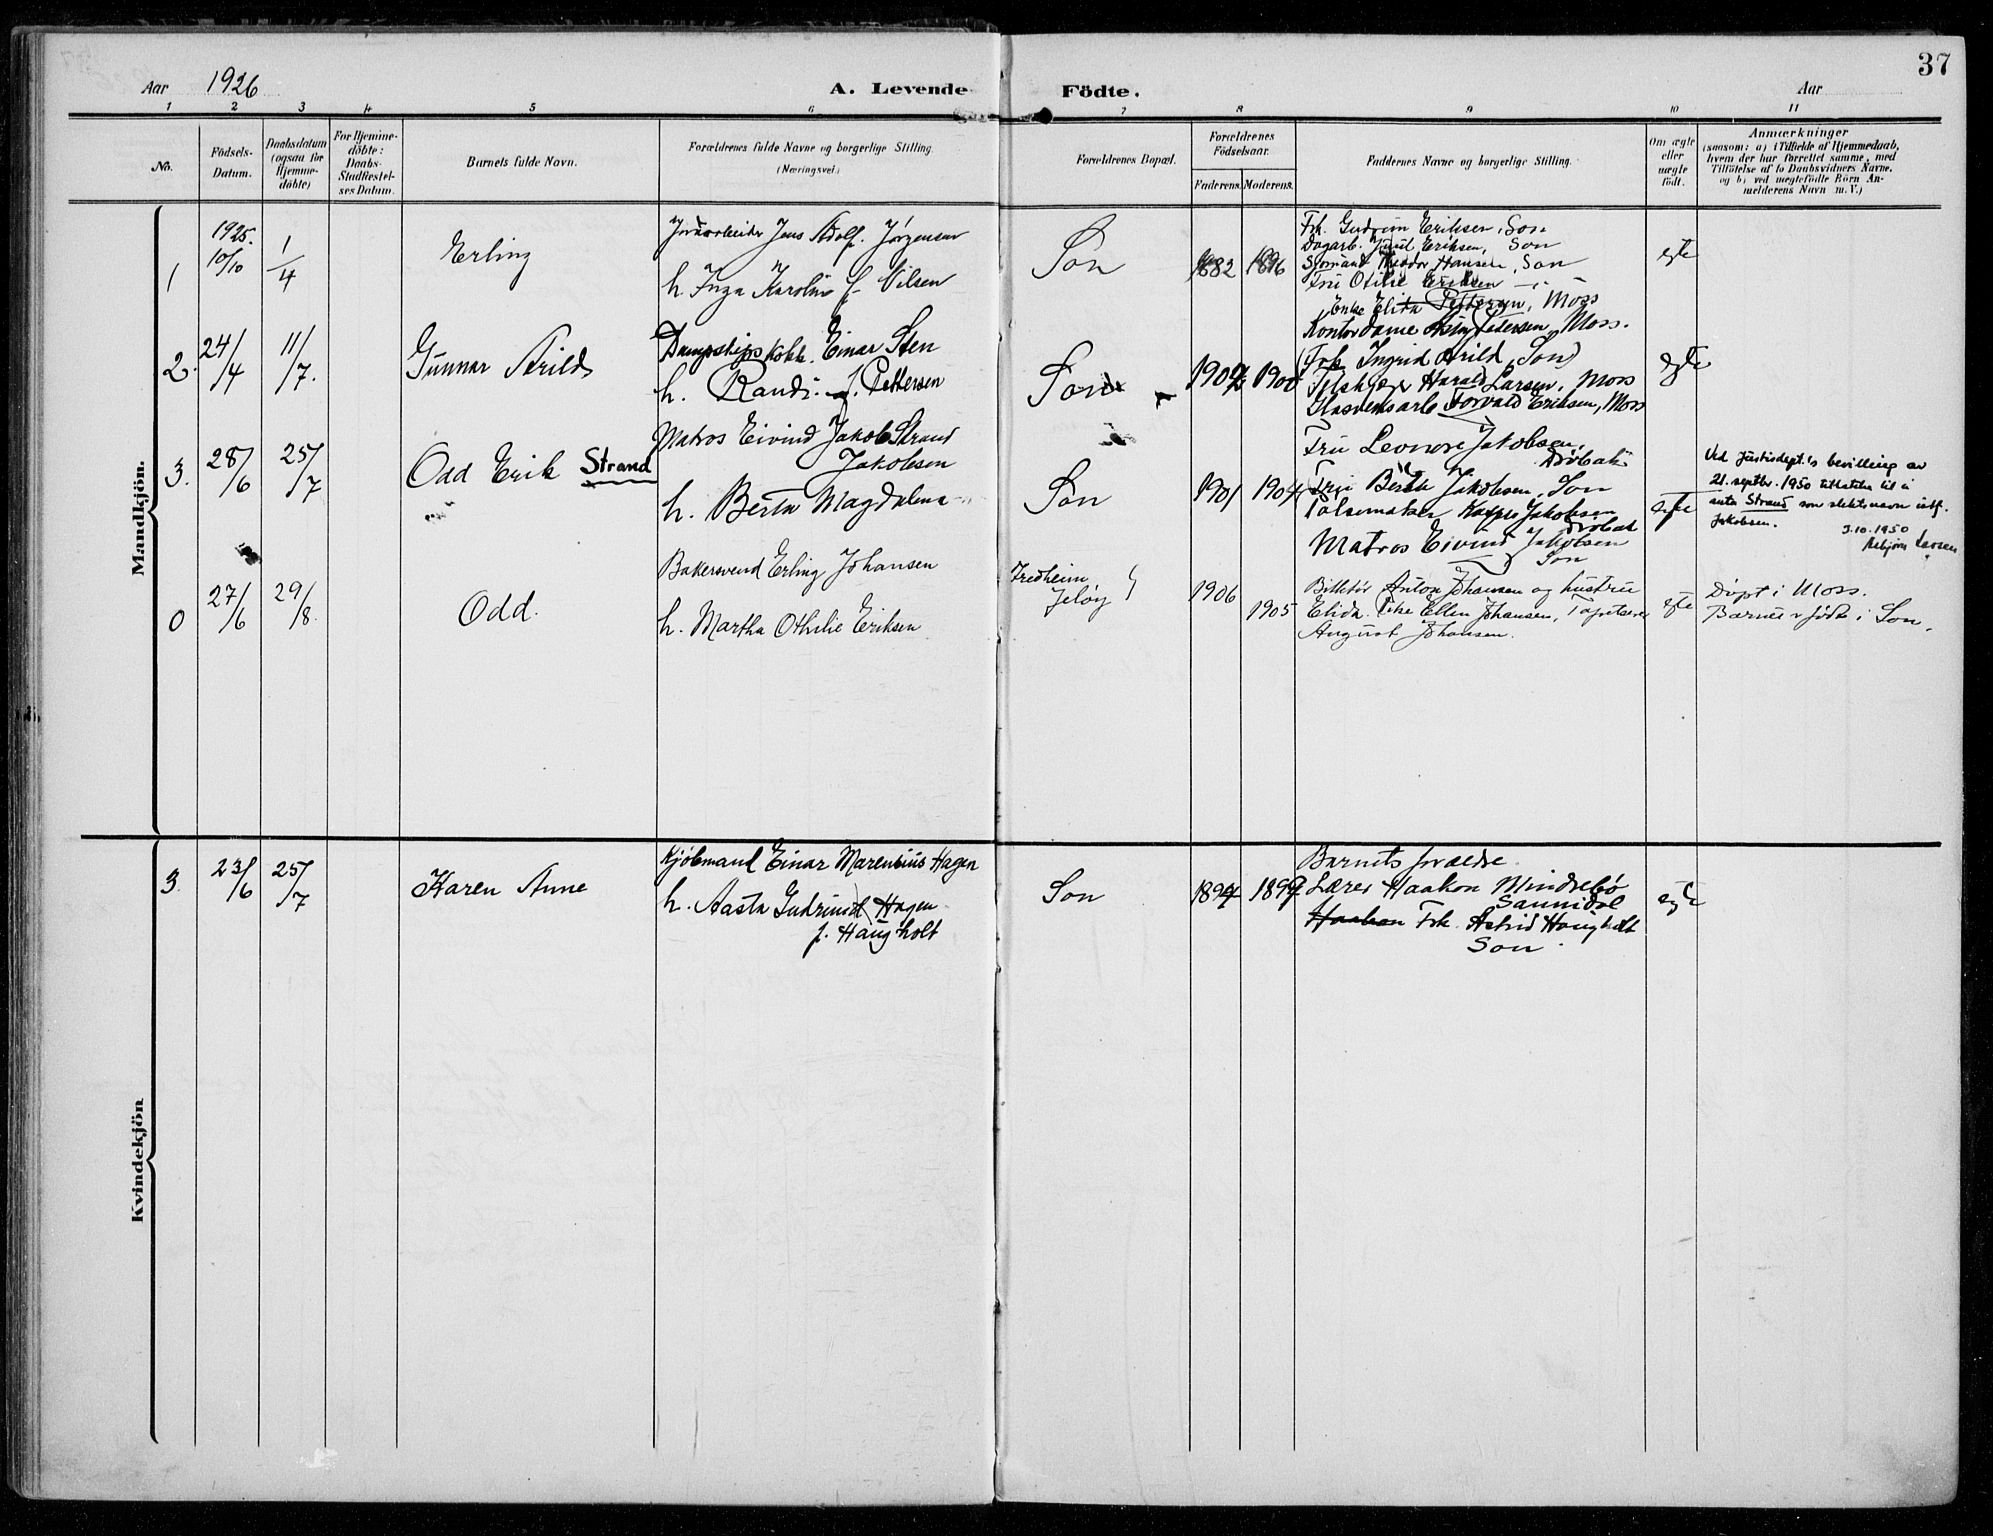 37
Aar 1926
A. Levende
Födte.
Aar
1 2 3 4 5 6 7 8 9 10 11
No.
Födsels-
Datum.
Daabsdatum
(ogsaa for
Hjemme-
döbte)
For Hjemme-
döbte:
Daabs-
Stadfæstel-
ses Datum.
Barnets fulde Navn.
Forældrenes fulde Navne og borgerlige Stilling.
(Næringsvei.)
Forældrenes Bopæl.
Forældrenes
Födselsaar.
Faderens. Moderens.
Faddernes Navne og borgerlige Stilling.
Om ægte
eller
uægte
födt.
Anmærkninger
(saasom: a) i Tilfælde af Hjemmedaab,
hvem der har forrettet samme, med
Tilföielse af to Daabsvidners Navne,
og b) ved uægtefödte Börn An-
melderens Navn m. V.)
Mandkjön.
1
1925.
10/10
1/4
Erling
Jens Adolf Jörgensen
h. Inga Karolin f. Nilsen
Son
1882 1896
Frk. Gudrun Eriksen, Son
Dagarb. Juul Eriksen, Son
Sjömand Theodor Hansen, Son
Fru Otilie Eriksen
Enke Elida Pettersen, Moss
Kontordame Petersen, Moss.
egte
2.
24/4
11/7.
Gunnar Arild
Dampskips kokk. Einar Sten
h. Randi f. Pettersen
Son
1902 1900
(Frk Ingrid Arild, Son)
Harald Larsen, Moss
Glasverksarb Torvald Eriksen, Moss
egte
3.
28/6
25/7
Odd Erik Strand
Matros Eivind Jakob Strand
Jakobsen
h. Berta Magdalena
Son
1901 1904
Fru Leonore Jakobsen,
Dröbak
Fru Berta Jakobsen, Son
Pölsemaker Jakobsen
Dröbak
Matros Eivind Jakobsen
Son
egte
Ved Justisdept.'s bevilling av
21. septbr. 1950 tillatelse til å
anta Strand som slektsnavn istf.
Jakobsen.
3.10.1950
Larsen
0
27/6
29/8.
Odd.
Bakersvend Erling Johansen
h. Martha Othilie Eriksen
Fredheim
Jelöy
1906
1905
Anton Johansen og hustru
Elida. Frk Ellen Johansen, Tapetserer
August Johansen.
egte
Döpt i Moss.
Barnet er födt i Son.
Kvindekjön
3.
23/6
25/7
Karen Anne
Kjöbmand Einar Marensius Hagen
h. Aasta Gudrun Hagen
f. Haugholt
Son
1894 1897
Barnets forældre.
Lærer Haakon Mindrebö
Sannidal
Haakon Frk. Astrid Haugholt
Son.
egte